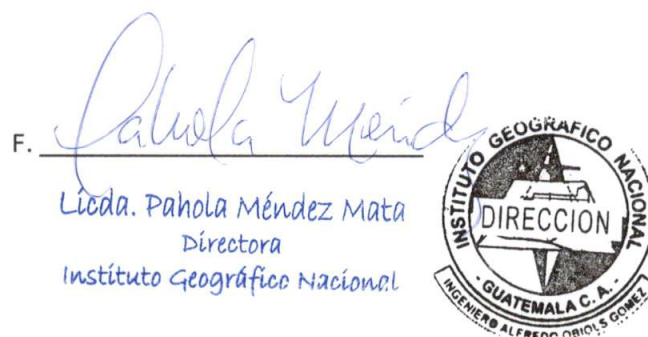 F. Pahola Ménd
Licda. Pahola Méndez Mata
Directora
Instituto Geográfico Nacional
INSTITUTO GEOGRAFICO NACIONAL
DIRECCION
- GUATEMALA C. A. -
INGENIERO ALFREDO OBIOLS GOMEZ